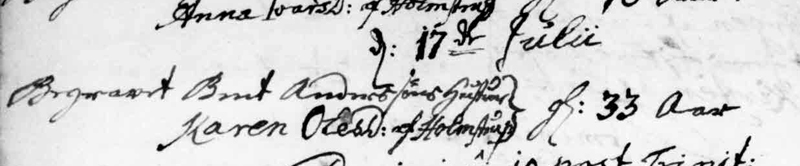 Anna Ivarsd: af Holmstrup
d: 17de Julii
Begravet Bent Anderssøns Hustrue
Karen Olesd: af Holmstrup gl: 33 Aar
10 post Trinit: